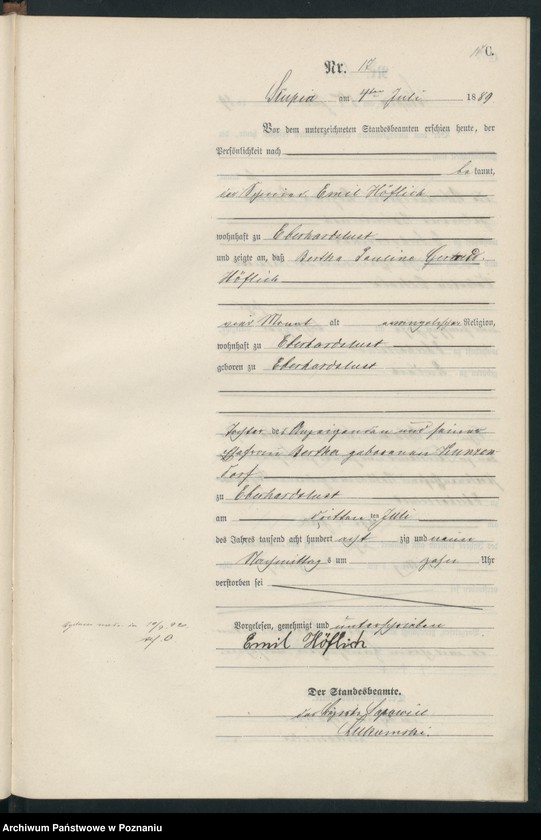 C.
Nr. 17
Slupia am 4ten Juli 1889
Vor dem unterzeichneten Standesbeamten erschien heute, der
Persönlichkeit nach
be kannt,
der Emil Höflich
wohnhaft zu Eberhardslust
und zeigte an, daß Bertha Pauline
Höflich
vier Monat alt evangelischer Religion,
wohnhaft zu Eberhardslust
geboren zu Eberhardslust
Tochter des Anzeigenden und seiner
Ehefrau Bertha geborenen Kunzen
dorf
zu Eberhardslust
am dritten ten Juli
des Jahres tausend acht hundert acht zig und neun
Nachmittag s um zehn Uhr
verstorben sei
Vorgelesen, genehmigt und unterschrieben
Emil Höflich
Der Standesbeamte.
Archiwum Państwowe w Poznaniu